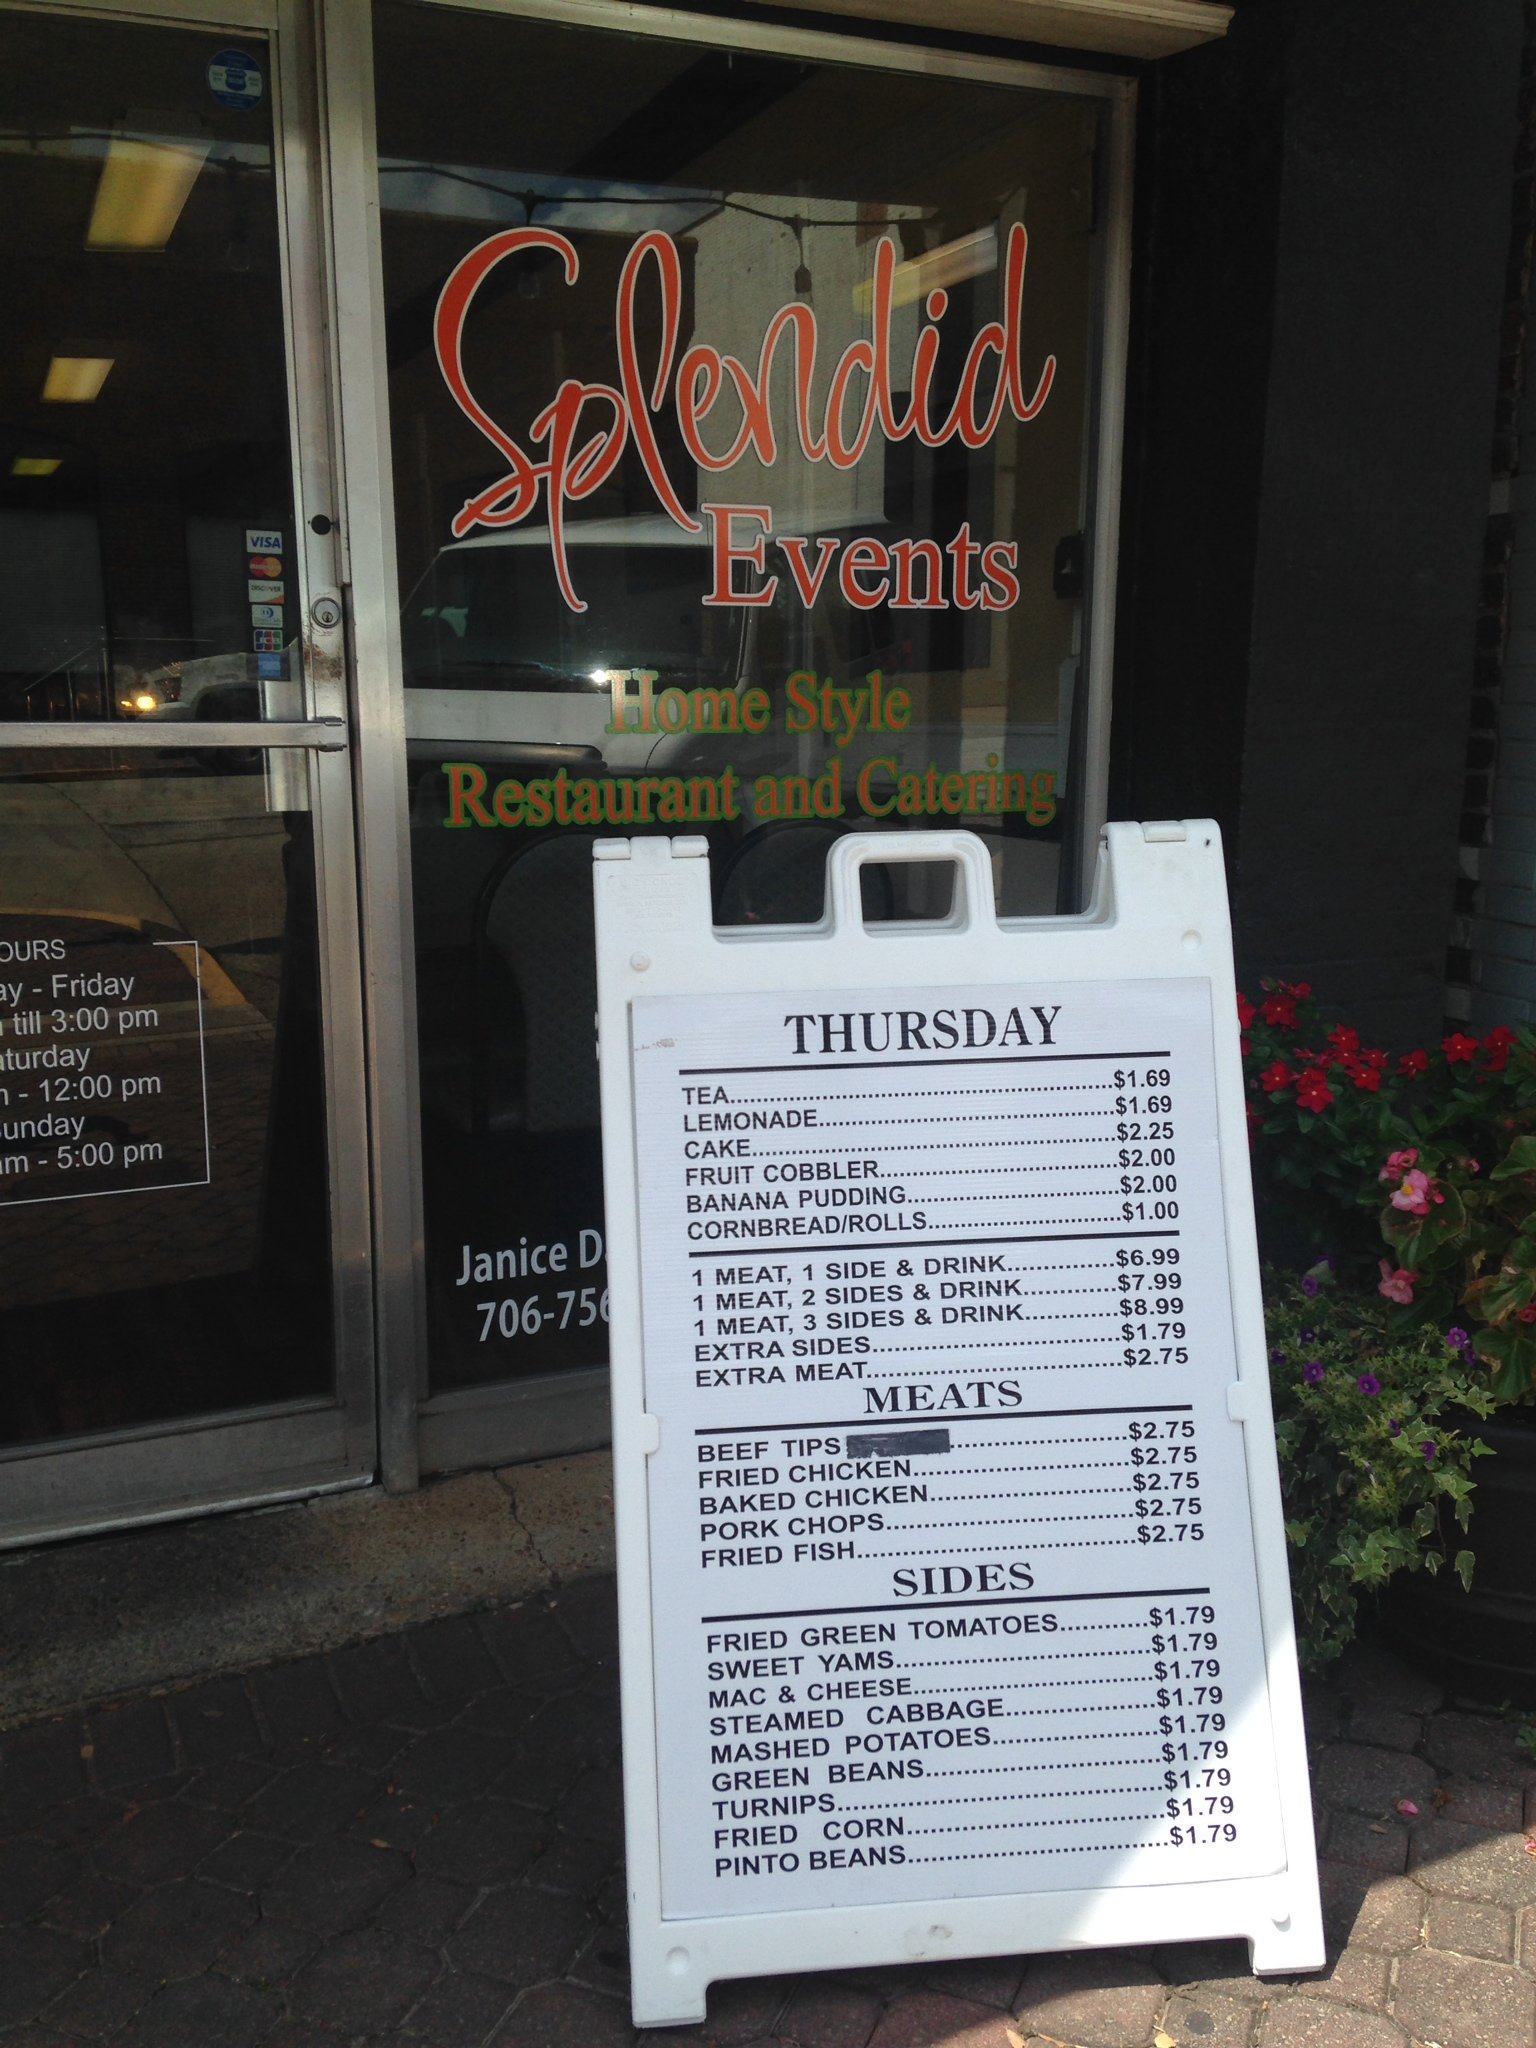 Splendid
Events
Home Style
Restaurant and Catering
VISA
MasterCard
DISCOVER
OURS
ay - Friday
till 3:00 pm
aturday
- 12:00 pm
unday
m - 5:00 pm
Janice D
706-756
THURSDAY
TEA..........$1.69
LEMONADE..........$1.69
CAKE..........$2.25
FRUIT COBBLER..........$2.00
BANANA PUDDING..........$2.00
CORNBREAD/ROLLS..........$1.00
1 MEAT, 1 SIDE & DRINK..........$6.99
1 MEAT, 2 SIDES & DRINK..........$7.99
1 MEAT, 3 SIDES & DRINK..........$8.99
EXTRA SIDES..........$1.79
EXTRA MEAT..........$2.75
MEATS
BEEF TIPS ..........$2.75
FRIED CHICKEN..........$2.75
BAKED CHICKEN..........$2.75
PORK CHOPS..........$2.75
FRIED FISH..........$2.75
SIDES
FRIED GREEN TOMATOES..........$1.79
SWEET YAMS..........$1.79
MAC & CHEESE..........$1.79
STEAMED CABBAGE..........$1.79
MASHED POTATOES..........$1.79
GREEN BEANS..........$1.79
TURNIPS..........$1.79
FRIED CORN..........$1.79
PINTO BEANS..........$1.79